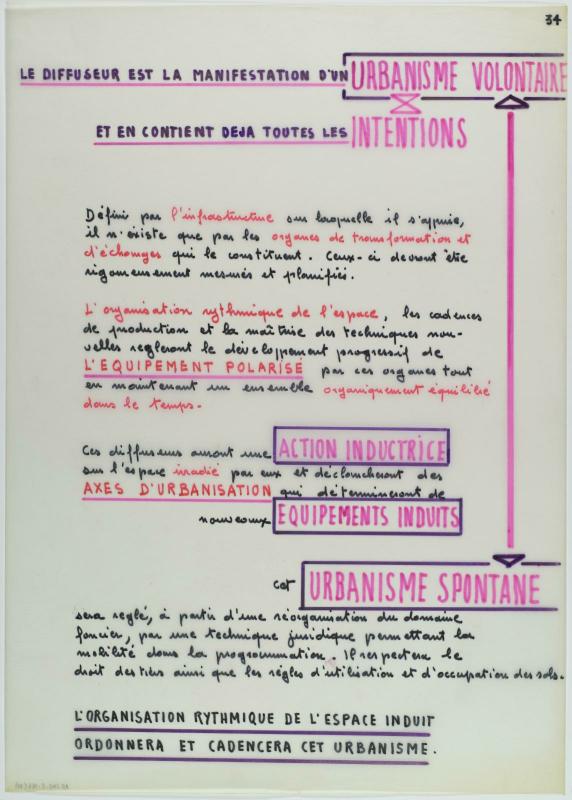 34
LE DIFFUSEUR EST LA MANIFESTATION D'UN URBANISME VOLONTAIRE
ET EN CONTIENT DEJA TOUTES LES INTENTIONS
Défini par l'infrastructure sur laquelle il s'appuie,
il n'existe que par les organes de transformation et
d'échanges qui le constituent. Ceux-ci devront être
rigoureusement mesurés et planifiés.
L'organisation rythmique de l'espace, les cadences
de production et la maîtrise des techniques nou-
velles regleront le développement progressif de
L'EQUIPEMENT POLARISÉ par ces organes tout
en maintenant un ensemble organiquement équilibré
dans le temps.
Ces diffuseurs auront une ACTION INDUCTRICE
sur l'espace irradié par eux et déclancheront des
AXES D'URBANISATION qui détermineront de
nouveaux EQUIPEMENTS INDUITS
cet URBANISME SPONTANE
sera reglé, à partir d'une réorganisation du domaine
foncier, par une technique juridique permettant la
mobilité dans la programmation. Il respectera le
droit des tiers ainsi que les régles d'utilisation et d'occupation des sols.
L'ORGANISATION RYTHMIQUE DE L'ESPACE INDUIT
ORDONNERA ET CADENCERA CET URBANISME.